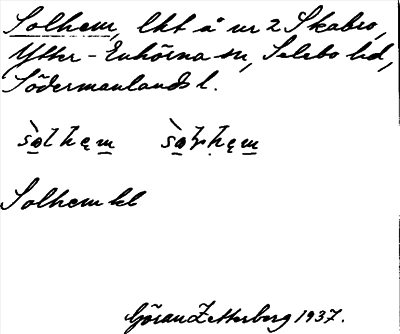 Solhem, lht å nr 2 Skabro,
Ytter-Enhörna sn, Selebo hd,
Södermanlands l.
Solhem kl
Göran Zetterberg 1937.